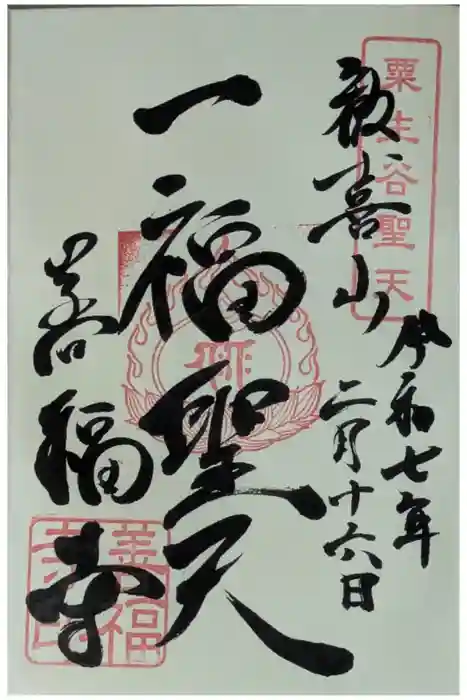 粟生谷聖天
歓喜山
令和七年
二月十六日
一福聖天
善福寺
善福